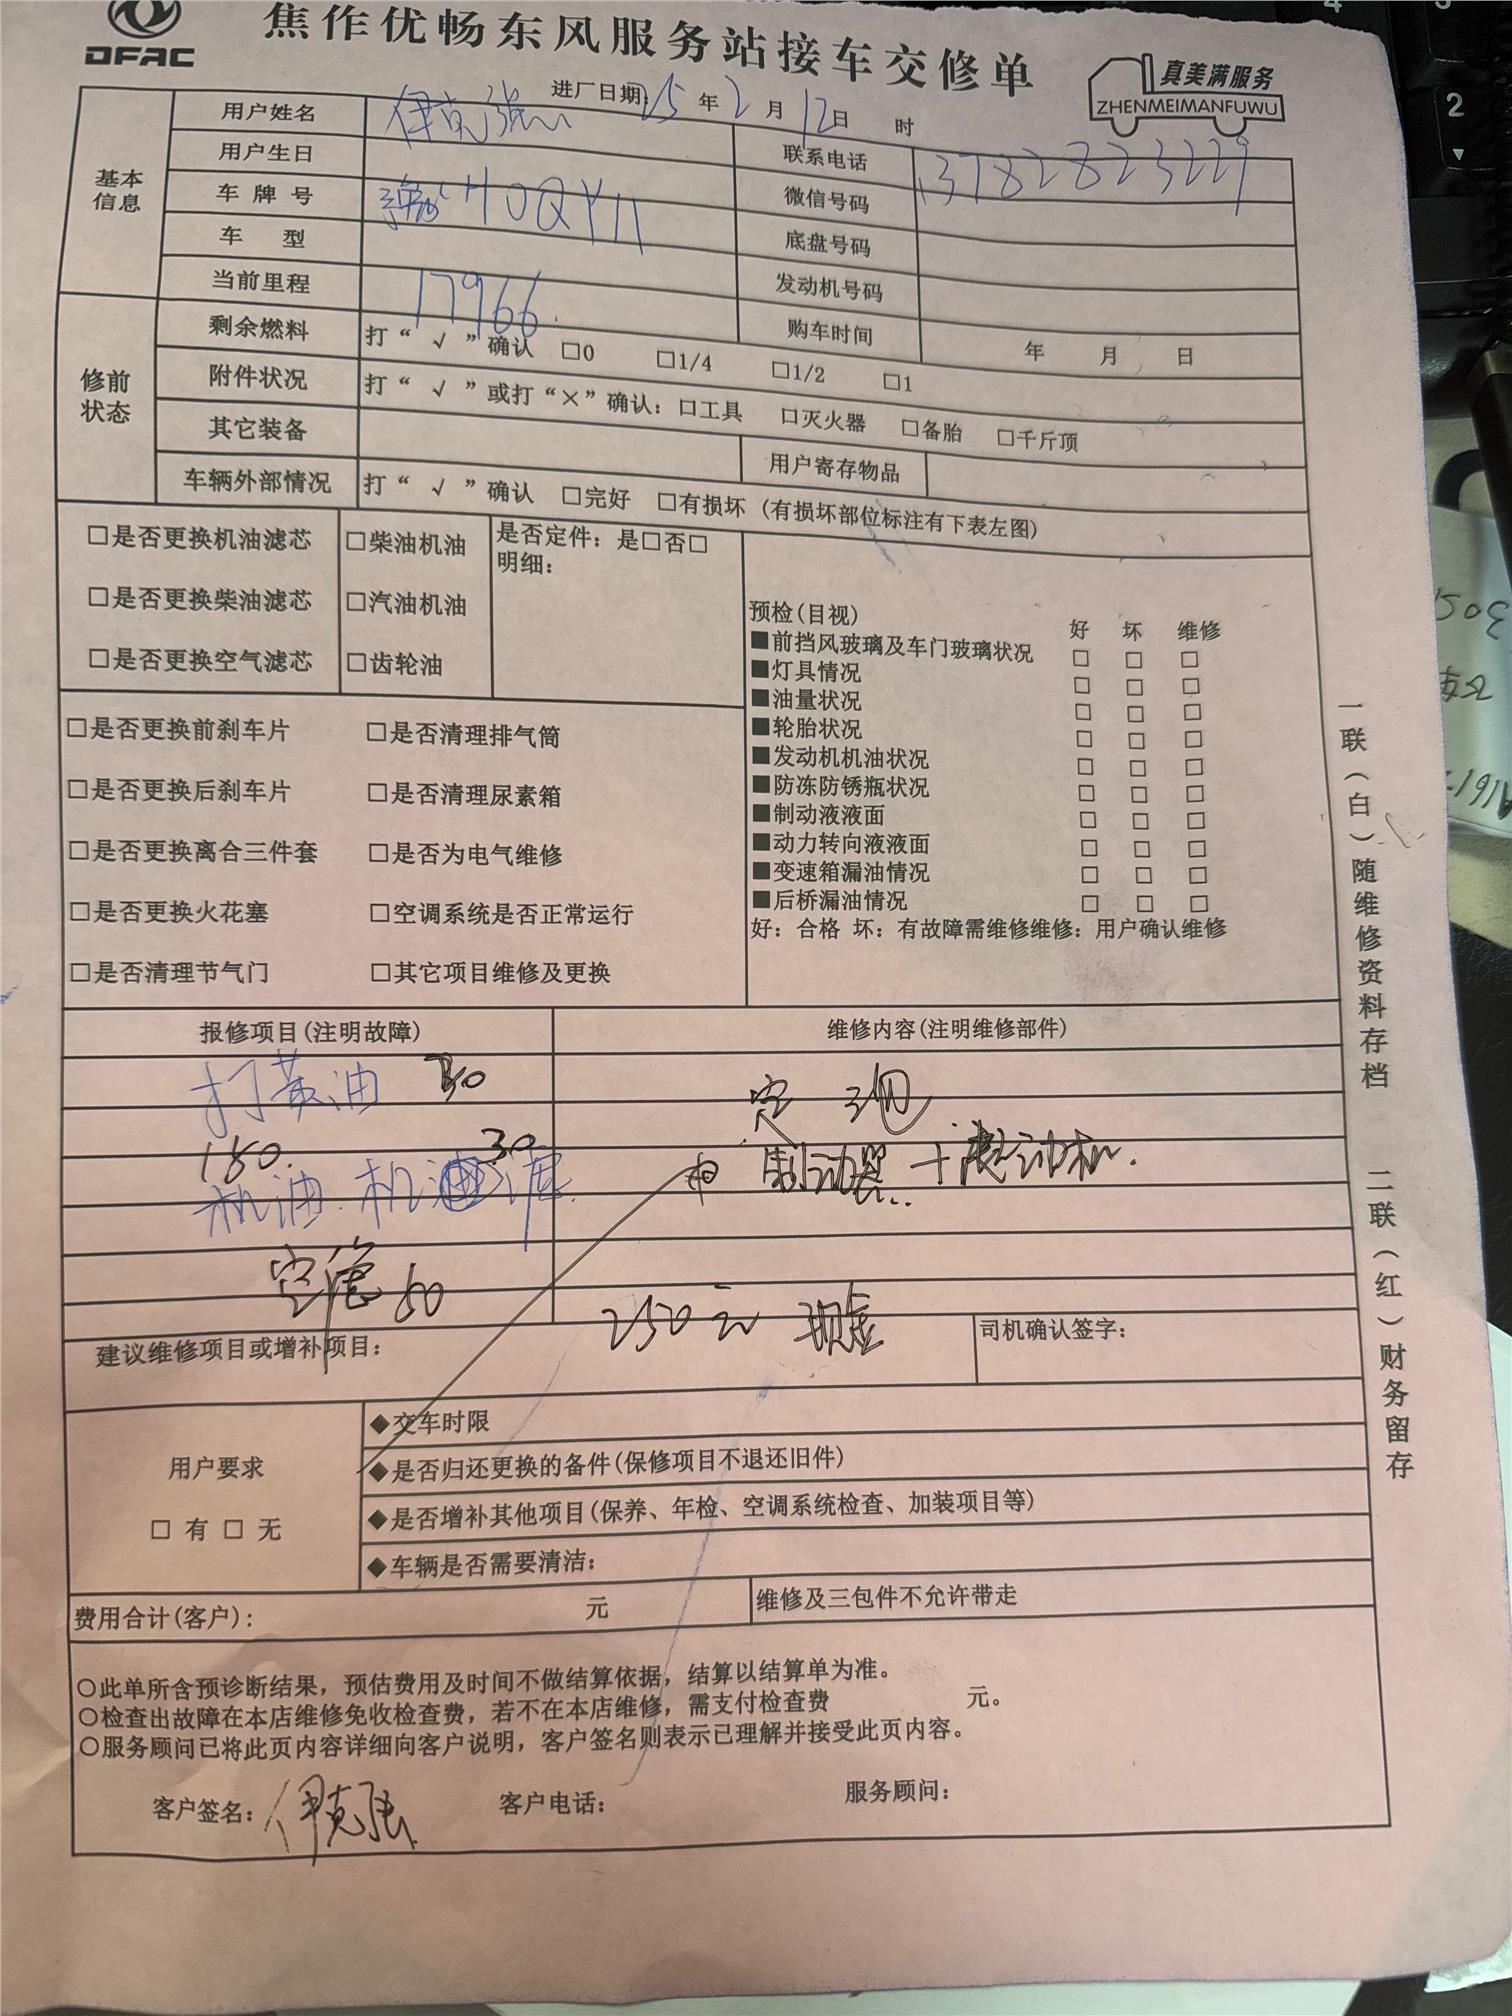 DFAC
焦作优畅东风服务站接车交修单
真美满服务
ZHENMEIMANFUWU
进厂日期: 25 年 2 月 12日 时
基本信息
用户姓名 伊克强
联系电话 13782823229
用户生日
微信号码
车牌号 豫HOQY11
底盘号码
车 型
发动机号码
当前里程 17966
购车时间 年 月 日
修前状态
剩余燃料 打“√”确认 □0 □1/4 □1/2 □1
附件状况 打“√”或打“×”确认: □工具 □灭火器 □备胎 □千斤顶
其它装备
用户寄存物品
车辆外部情况 打“√”确认 □完好 □有损坏 (有损坏部位标注有下表左图)
□是否更换机油滤芯 □柴油机油
□是否更换柴油滤芯 □汽油机油
□是否更换空气滤芯 □齿轮油
是否定件: 是□否□
明细:
□是否更换前刹车片 □是否清理排气筒
□是否更换后刹车片 □是否清理尿素箱
□是否更换离合三件套 □是否为电气维修
□是否更换火花塞 □空调系统是否正常运行
□是否清理节气门 □其它项目维修及更换
预检(目视) 好 坏 维修
■前挡风玻璃及车门玻璃状况 □ □ □
■灯具情况 □ □ □
■油量状况 □ □ □
■轮胎状况 □ □ □
■发动机机油状况 □ □ □
■防冻防锈瓶状况 □ □ □
■制动液液面 □ □ □
■动力转向液液面 □ □ □
■变速箱漏油情况 □ □ □
■后桥漏油情况 □ □ □
好: 合格 坏: 有故障需维修维修: 用户确认维修
报修项目(注明故障)
维修内容(注明维修部件)
打黄油 50
180. 30
机油. 机油
空滤 50
制动器 + 起动机.
250元 现金
建议维修项目或增补项目:
司机确认签字:
用户要求
□ 有 □ 无
◆交车时限
◆是否归还更换的备件(保修项目不退还旧件)
◆是否增补其他项目(保养、年检、空调系统检查、加装项目等)
◆车辆是否需要清洁:
费用合计(客户): 元
维修及三包件不允许带走
○此单所含预诊断结果, 预估费用及时间不做结算依据, 结算以结算单为准。
○检查出故障在本店维修免收检查费, 若不在本店维修, 需支付检查费 元。
○服务顾问已将此页内容详细向客户说明, 客户签名则表示已理解并接受此页内容。
客户签名: 伊克强 客户电话: 服务顾问:
一联(白)随维修资料存档
二联(红)财务留存
2